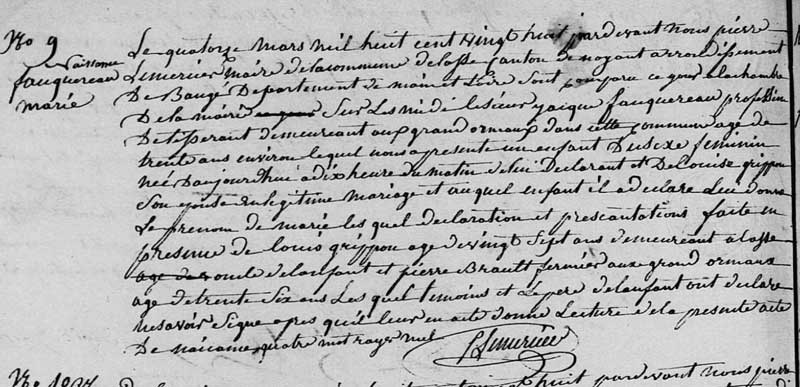 No 9
Naissance
fauquereau
marié
Le quatorze mars mil huit cent vingt huit pardevant nous pierre
Lemercier maire de la commune de lasse canton de noyant arrondissement
De Baugé Departement de maine et Loire sont comparu ce jour a la chambre
De la mairie sur les midi le sieur jacque fauquereau profession
De tisserant demeureant aux grand ormaux dans cette commune age de
trente ans environ lequel nous a presente un enfant Du sexe feminin
née Daujourdhui a dix heure du matin de lui Declarant et De louise grippon
Son epouse en legitime mariage et auquel enfant il a declare lui donne
Le prenom de marie les quel declaration et presantations faite en
presence de louis grippon age de vingt Sept ans demeureant a lasse
age de oncle de lanfant et pierre Brault fermier aux grand ormaux
age de trente Six ans Les quel temoins et Le pere de lanfant ont declare
ne savoir Signe apres quil leur en acte donne Lecture de la presente acte
De naicance quatre mot rayer nul Lemercier
pardevant nous pierre